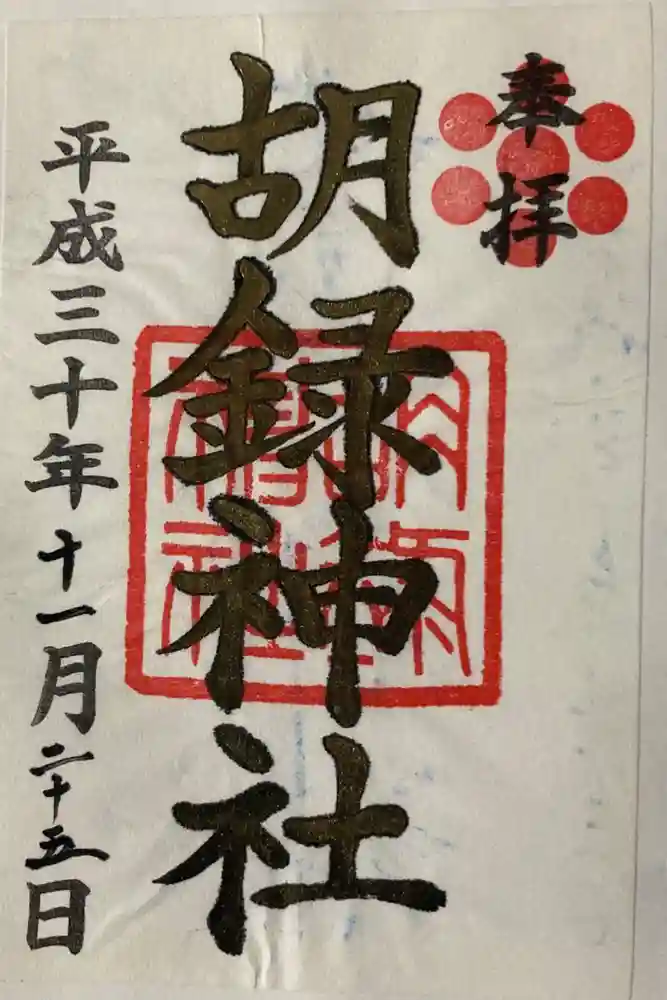 奉拝
胡録神社
平成三十年十一月二十五日